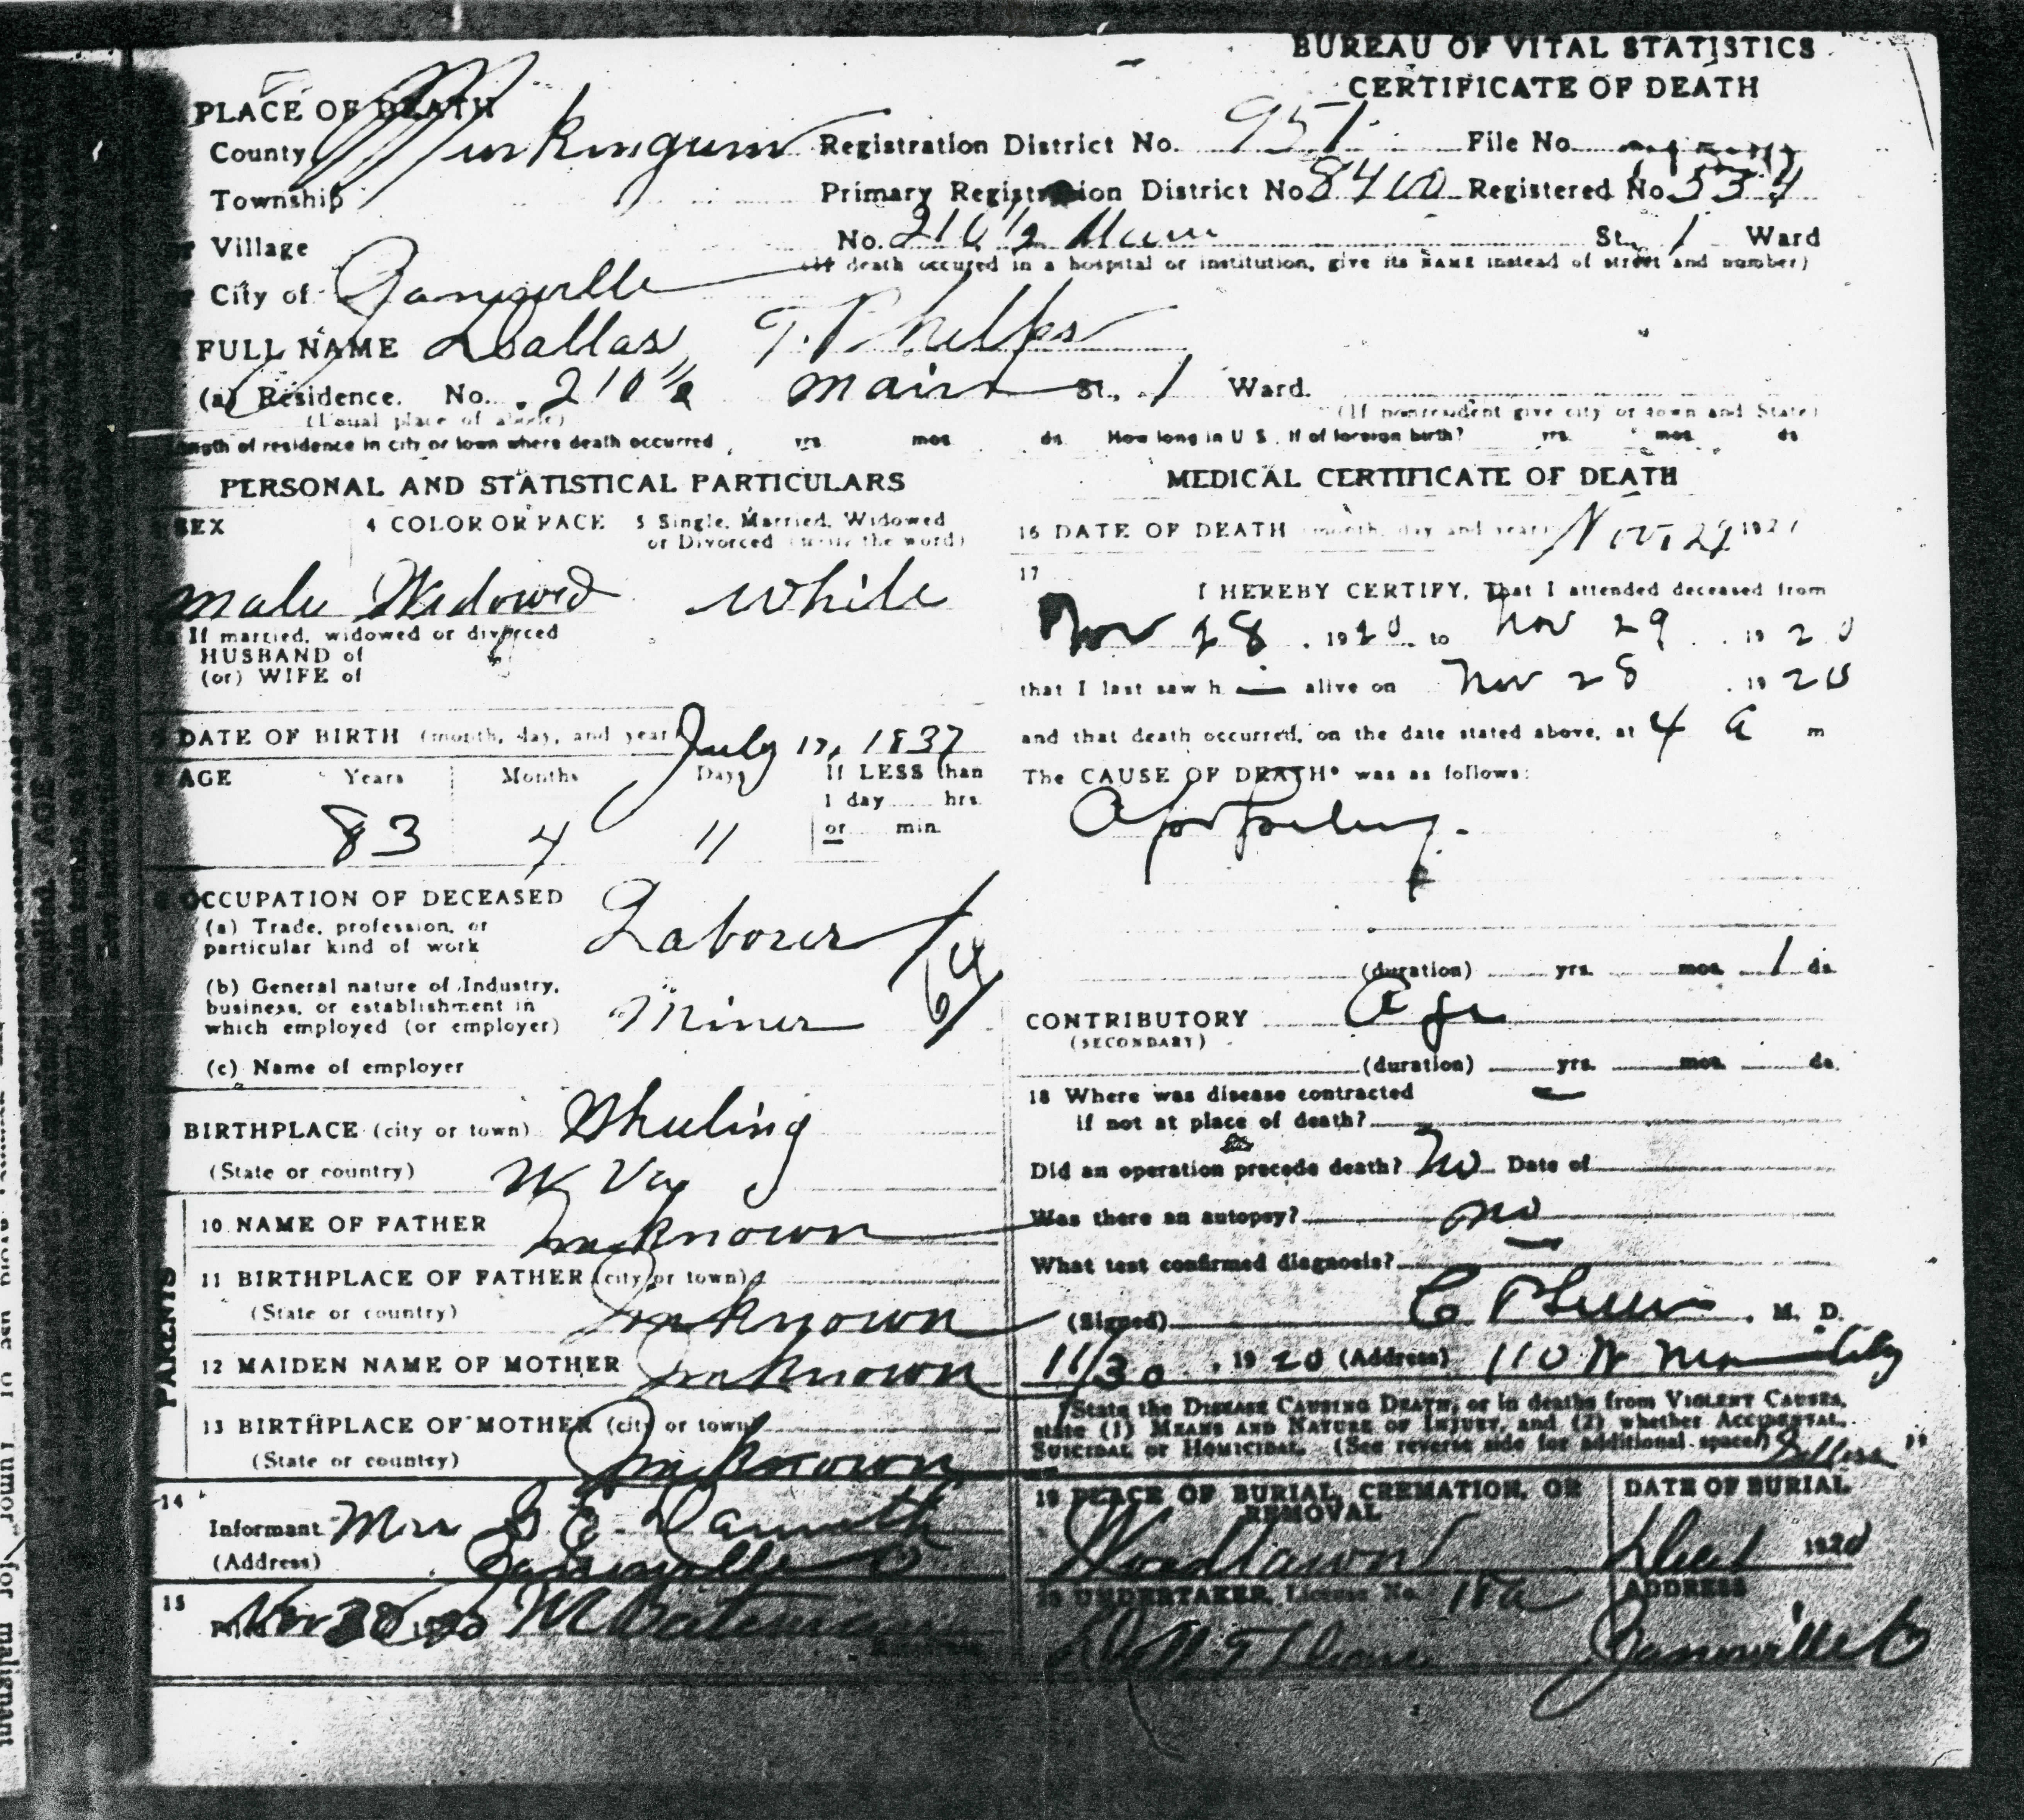 BUREAU OF VITAL STATISTICS
CERTIFICATE OF DEATH
PLACE OF DEATH
County Muskingum Registration District No. 951 File No.
Township Primary Registration District No 8400 Registered No 534
Village No. 210 1/2 Main St. 1 Ward
(If death occured in a hospital or institution, give its NAME instead of street and number)
City of Zanesville
FULL NAME Dallas T. Phelps
(a) Residence. No. 210 1/2 Main St., 1 Ward.
(Usual place of abode) (If nonresident give city or town and State)
ength of residence in city or town where death occurred yrs. mos. ds. How long in U S. if of foreign birth? yrs. mos. ds
PERSONAL AND STATISTICAL PARTICULARS
SEX 4 COLOR OR RACE 5 Single, Married, Widowed
or Divorced (write the word)
Male Widowed White
If married, widowed or divorced
HUSBAND of
(or) WIFE of
DATE OF BIRTH (month, day, and year) July 17, 1837
AGE Years Months Days If LESS than
1 day hrs.
or min.
83 4 11
OCCUPATION OF DECEASED
(a) Trade, profession, or
particular kind of work Laborer
(b) General nature of Industry,
business, or establishment in
which employed (or employer) Miner
64
(c) Name of employer
BIRTHPLACE (city or town) Wheeling
(State or country) W Va
PARENTS
10 NAME OF FATHER Unknown
11 BIRTHPLACE OF FATHER (city or town)
(State or country) Unknown
12 MAIDEN NAME OF MOTHER Unknown
13 BIRTHPLACE OF MOTHER (city or town)
(State or country) Unknown
14
Informant Mrs
(Address) Zanesville O
15
Nov 30 1920 Bateman
MEDICAL CERTIFICATE OF DEATH
16 DATE OF DEATH (month, day and year) Nov. 29 192
17
I HEREBY CERTIFY, That I attended deceased from
Nov 28, 1920 to Nov 29, 1920
that I last saw h alive on Nov 28, 1920
and that death occurred, on the date stated above, at 4 a m
The CAUSE OF DEATH* was as follows:
Apoplexy.
(duration) yrs. mos. 1 ds.
CONTRIBUTORY Age
(SECONDARY)
(duration) yrs. mos. ds.
18 Where was disease contracted
if not at place of death?
Did an operation precede death? No Date of
Was there an autopsy? no
What test confirmed diagnosis?
(Signed) M. D.
11/30, 1920 (Address) 110 N City
State the DISEASE CAUSING DEATH, or in deaths from VIOLENT CAUSES,
state (1) MEANS AND NATURE OF INJURY, and (2) whether ACCIDENTAL,
SUICIDAL or HOMICIDAL. (See reverse side for additional space.)
19 PLACE OF BURIAL, CREMATION, OR REMOVAL DATE OF BURIAL
Woodlawn Dec 1 1920
20 UNDERTAKER, License No. 18a ADDRESS
Zanesville O